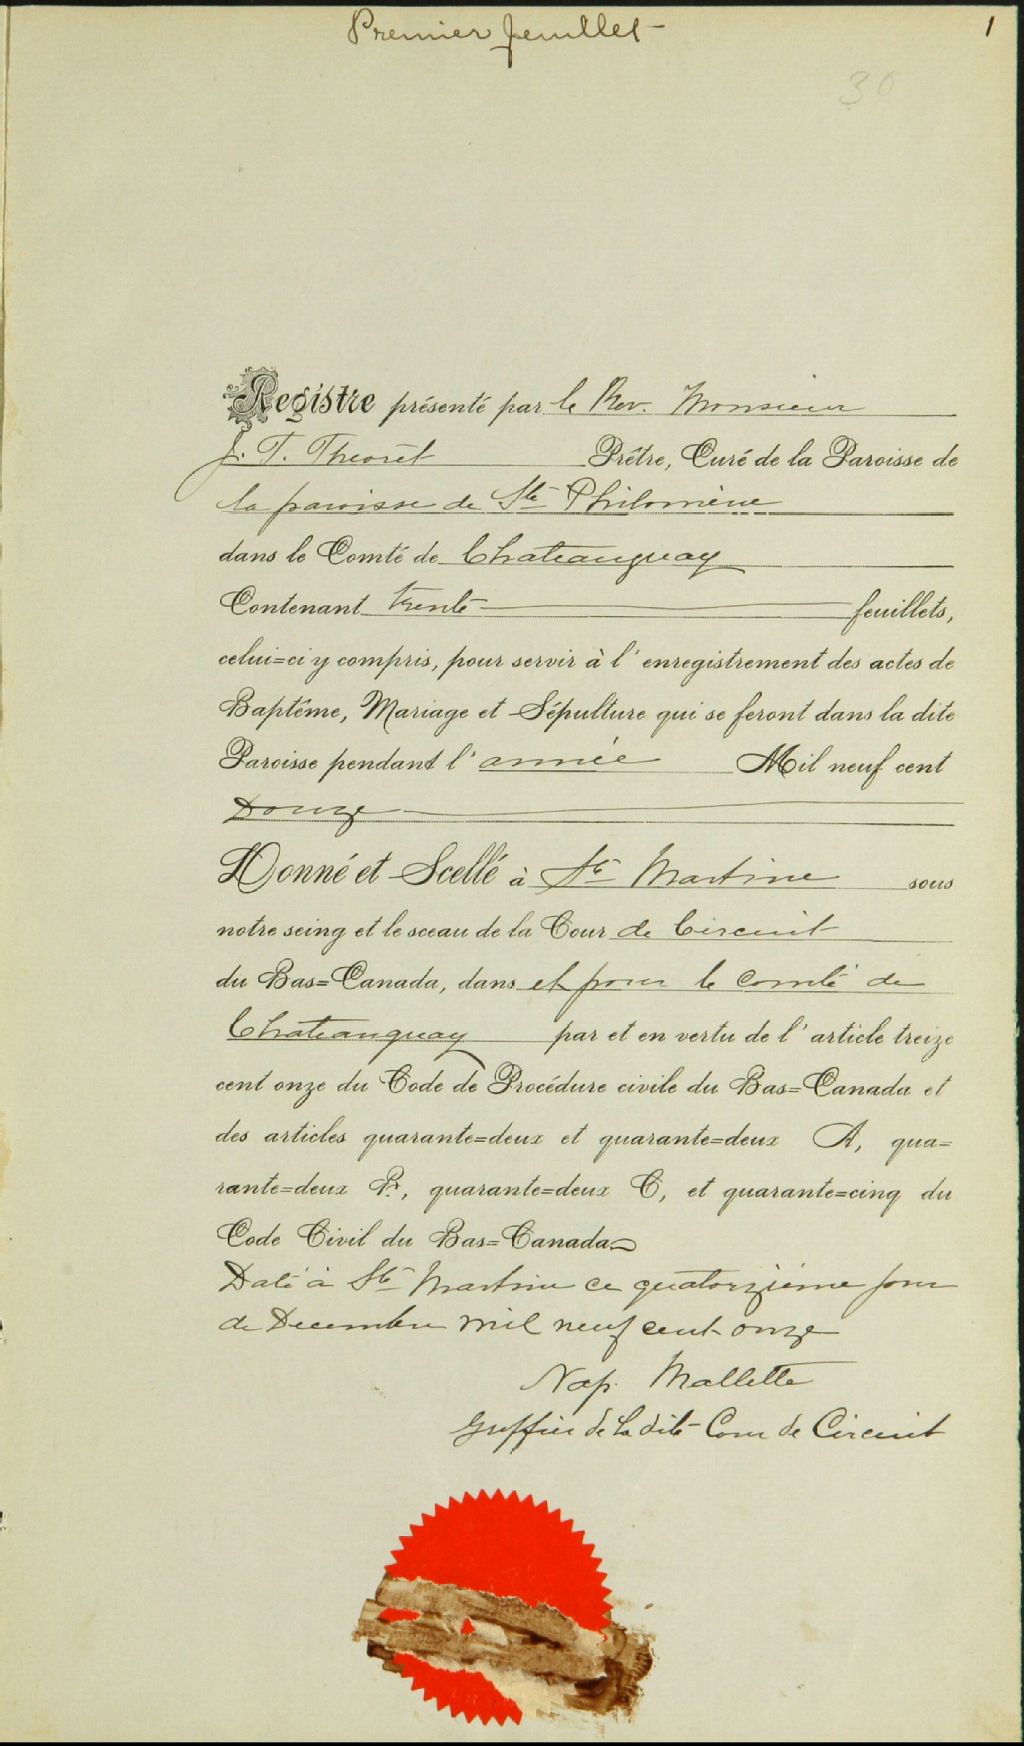 Premier feuillet - 1
30
Registre présenté par le Rev. Monsieur
J. T. Theoret Prêtre, Curé de la Paroisse de
la paroisse de Ste Philomène
dans le Comté de Chateauguay
Contenant trente feuillets,
celui=ci y compris, pour servir à l'enregistrement des actes de
Baptême, Mariage et Sépulture qui se feront dans la dite
Paroisse pendant l'année Mil neuf cent
Douze
Donné et Scellé à Ste Martine sous
notre seing et le sceau de la Cour de Circuit
du Bas=Canada, dans et pour le comté de
Chateauguay par et en vertu de l'article treize
cent onze du Code de Procédure civile du Bas=Canada et
des articles quarante=deux et quarante=deux A, qua=
rante=deux B, quarante=deux C, et quarante=cinq du
Code Civil du Bas=Canada
Daté à Ste Martine ce quatorzième jour
de Decembre mil neuf cent onze
Nap. Mallette
Greffier de la dite Cour de Circuit